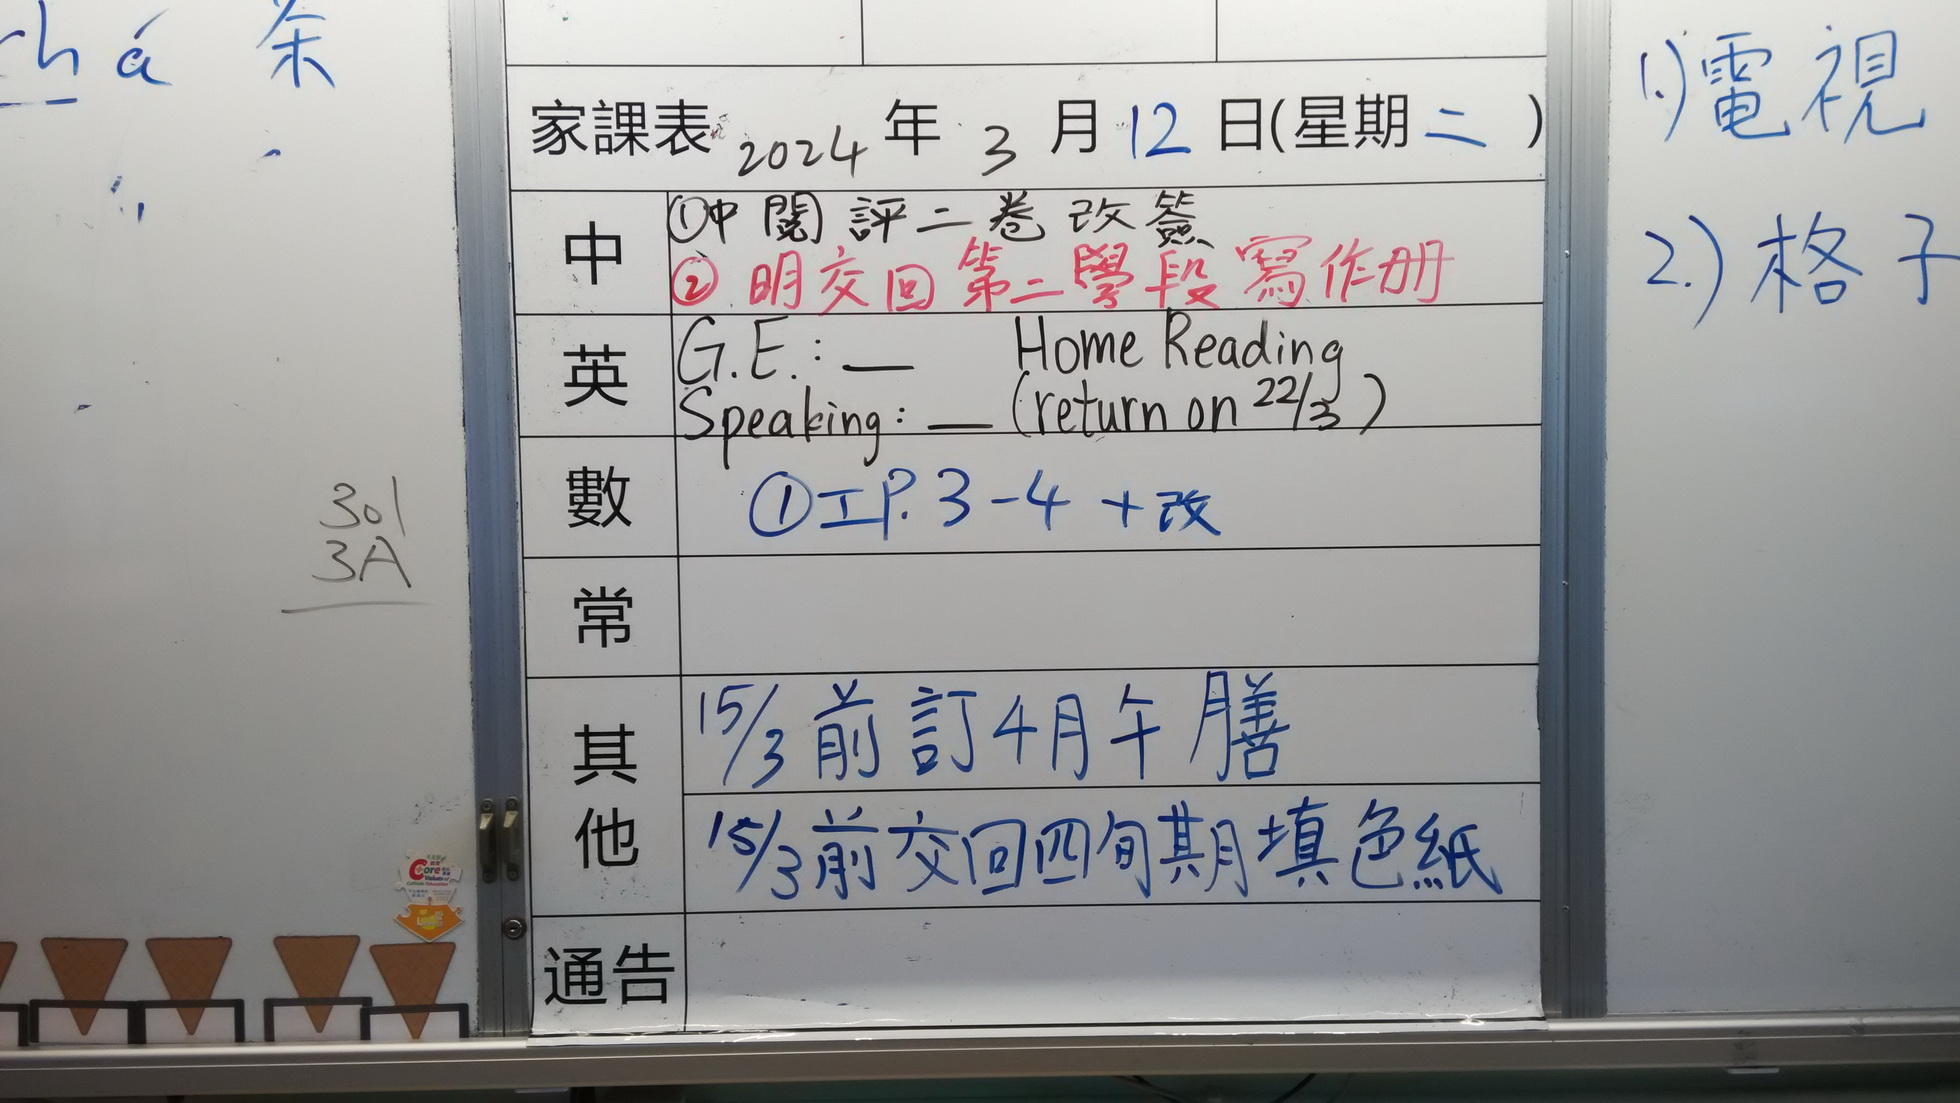 chá 茶
301
3A
Core
Values of
Catholic Education
家課表 2024 年 3 月 12 日(星期二)
中
①中閱評二卷改簽
②明交回第二學段寫作册
英
G.E.: — Home Reading
Speaking: — (return on 22/3)
數
①工P.3-4 +改
常
其他
15/3前訂4月午膳
15/3前交回四旬期填色紙
通告
1.)電視
2.)格子